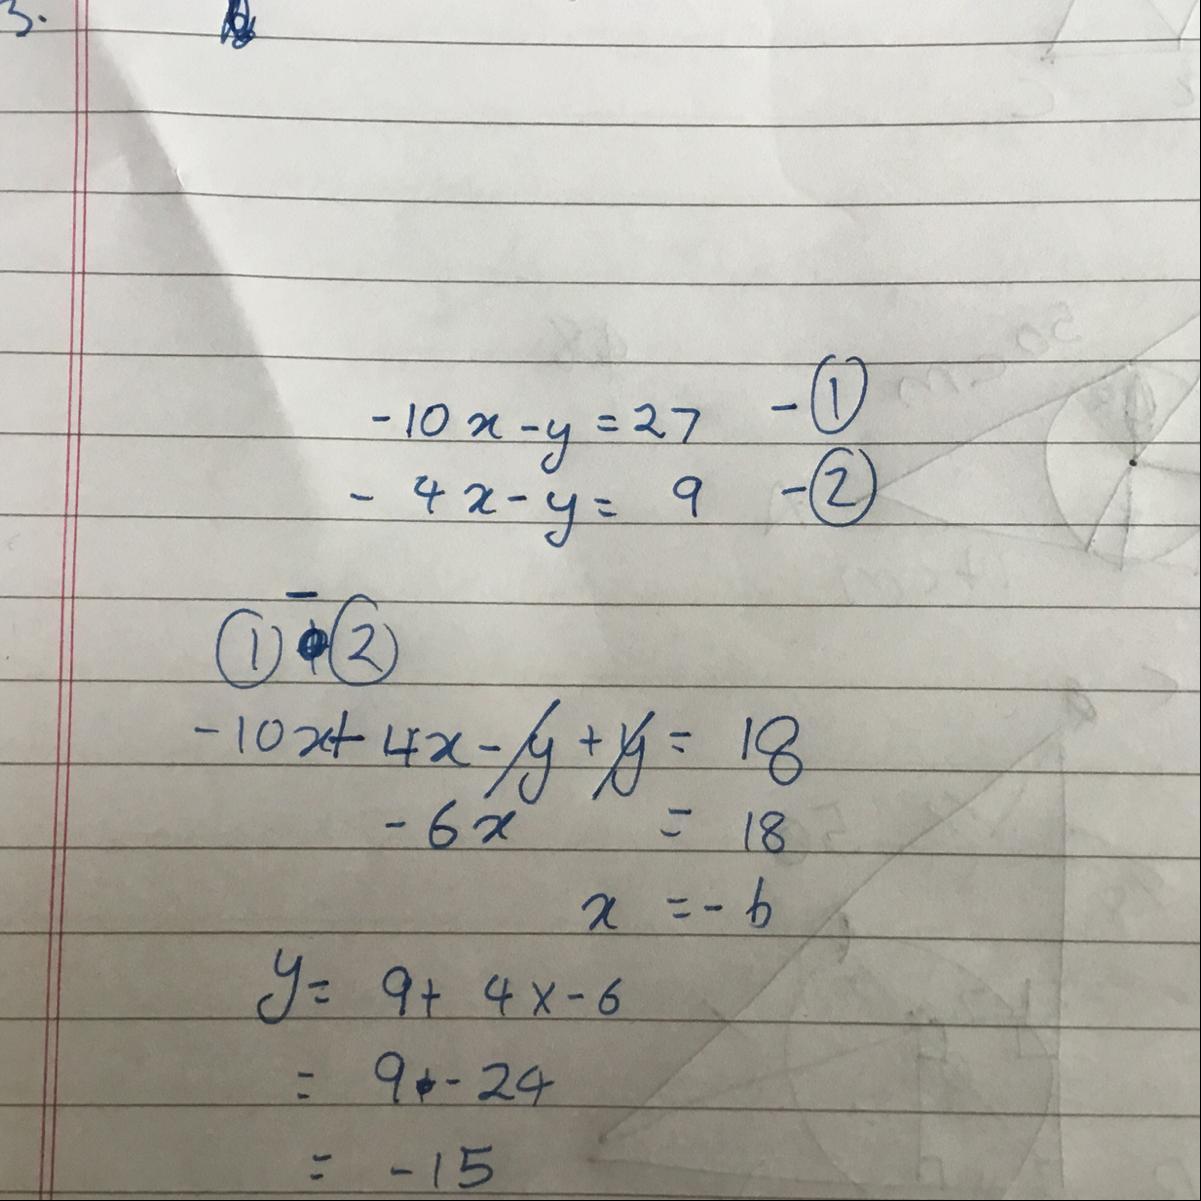 3.
-10x-y=27 -①
- 4x-y= 9 -②
① - ②
-10x+ 4x-y+y= 18
-6x = 18
x =-6
y= 9+ 4x-6
= 9 - 24
= -15